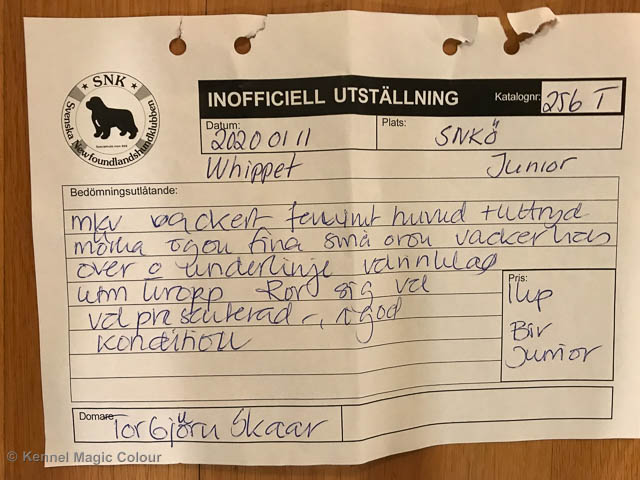 SNK
Svenska Newfoundlandshundklubben
INOFFICIELL UTSTÄLLNING
Katalognr: 256 T
Datum: 2020 01 11
Plats: SNKÖ
Whippet Junior
Bedömningsutlåtande:
mkv vackert feminint huvud + uttryck
mörka ögon fina små öron vacker hals
över o underlinje
utm kropp Rör sig väl
väl presenterad i god
kondition
Pris:
1 kp
Bir
Junior
Domare: Torbjörn Skaar
© Kennel Magic Colour